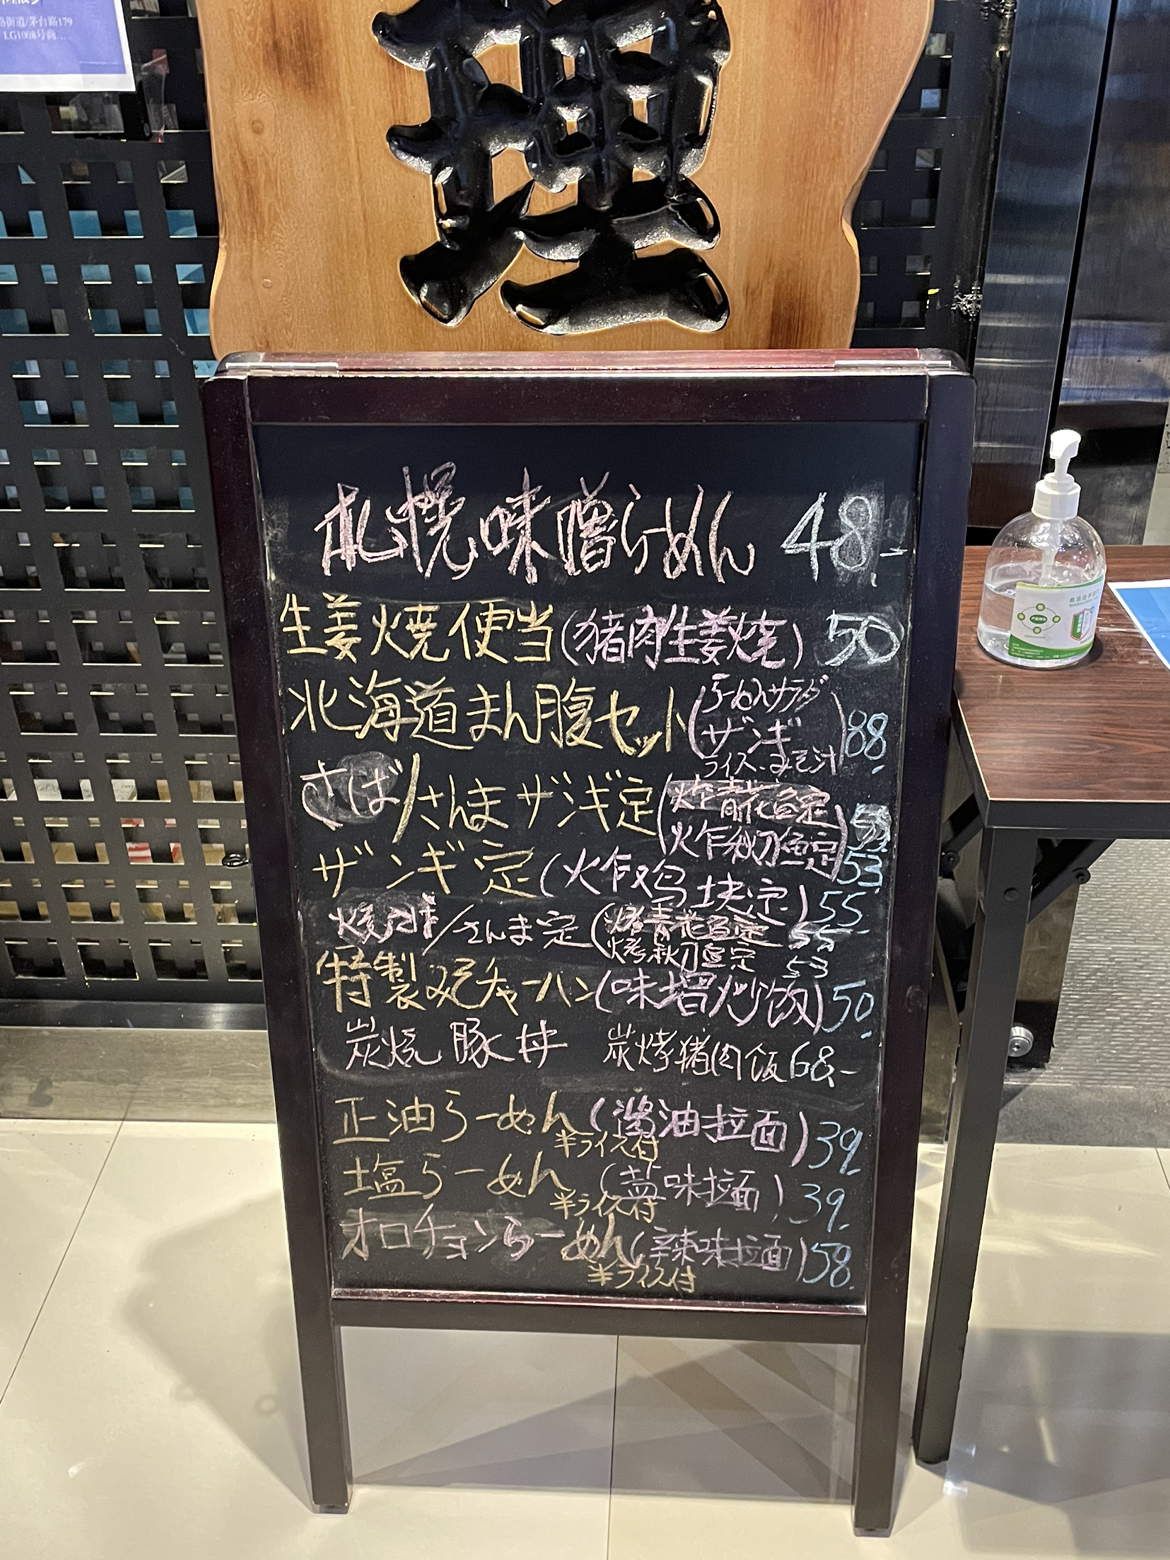 路街道/茅台路179
LG1008号商...
理
札幌味噌らーめん 48.-
生姜焼便当(猪肉生姜烧) 50
北海道まん腹セット(らーめんサラダ
ザンギ
ライス・みそ汁) 88.
さば/さんまザンギ定(炸青花鱼定
炸秋刀鱼定) 53
ザンギ定(炸鸡块定) 55.
焼さば/さんま定(烤青花鱼定
烤秋刀鱼定 53
特製みそチャーハン(味噌炒饭) 50.
炭焼豚丼 炭烤猪肉飯 68.-
正油らーめん(酱油拉面) 39.
半ライス付
塩らーめん(盐味拉面) 39.
半ライス付
オロチョンらーめん(辣味拉面) 58.
半ライス付